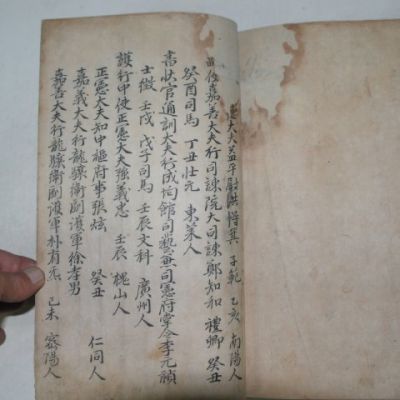 憲大夫益平尉洪得箕 子範 乙亥 南陽人
嘉善大夫行司諫院大司諫鄭知和 禮卿 癸丑
癸酉司馬 丁丑壯元 東萊人
書狀官通訓大夫行成均館司藝兼司憲府掌令李元禎
士徵 壬戌 戊子司馬 壬辰文科 廣州人
護行中使正憲大夫 義忠 壬辰 槐山人
正憲大夫知中樞府事張炫 癸丑 仁同人
嘉義大夫行龍驤衛副護軍徐孝男
嘉善大夫行龍驤衛副護軍朴有 己未 密陽人